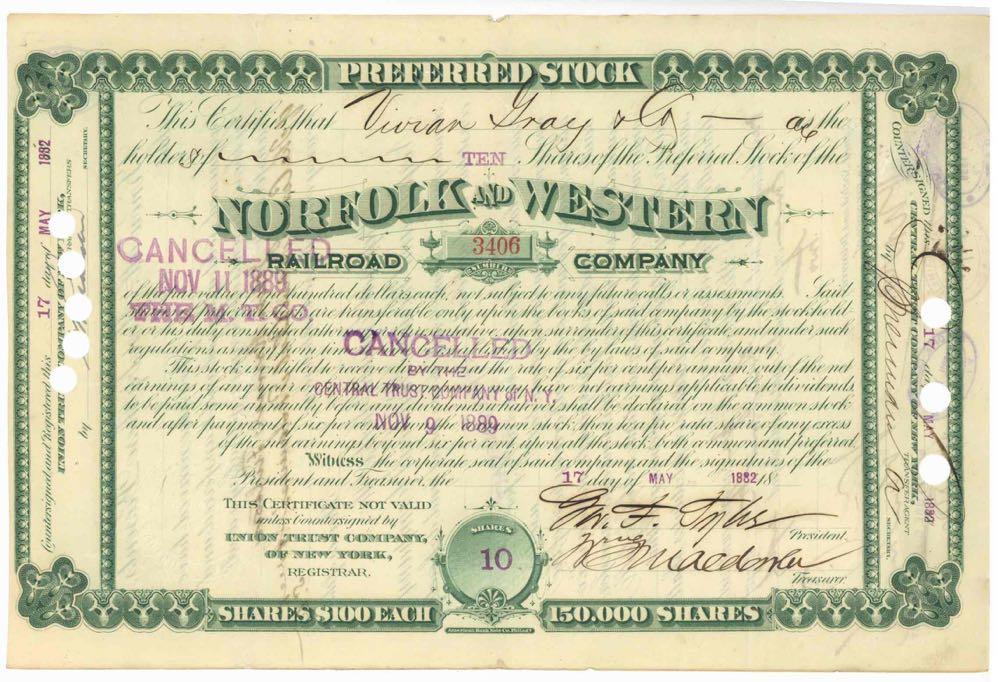 PREFERRED STOCK
This Certifies that Vivian Gray & Co — the
holders of TEN Shares of the Preferred Stock of the
NORFOLK AND WESTERN
3406
NUMBER
RAILROAD COMPANY
CANCELLED
NOV 11 1889
THE U. T. CO.
of the par value of one hundred dollars each, not subject to any future calls or assessments. Said
shares are transferable only upon the books of the company by the stockholder
or his duly constituted attorney upon surrender of this certificate, and under such
regulations as may from time to time be by the by laws of said company.
CANCELLED
BY THE
CENTRAL TRUST COMPANY of N.Y.
NOV 9 1889
This stock is entitled to receive at the rate of six per cent per annum, out of the net
earnings of any year applicable to dividends
to be paid semi annually before any shall be declared on the common stock
and after payment of six per cent on common stock, then to a pro rata share of any excess
of the net earnings beyond six per cent upon all the stock, both common and preferred.
Witness the corporate seal of said company, and the signatures of the
President and Treasurer, the 17 day of MAY 1882
THIS CERTIFICATE NOT VALID
unless Countersigned by
UNION TRUST COMPANY,
OF NEW YORK,
REGISTRAR.
SHARES
10
President.
Treasurer.
SHARES $100 EACH
150.000 SHARES
American Bank Note Co. Philada.
Countersigned and Registered this 17 day of MAY 1882
UNION TRUST COMPANY OF NEW YORK,
by
SECRETARY.
COUNTERSIGNED this 17 day MAY 1882
COMPANY OF NEW YORK,
TRANSFER AGENT
by
SECRETARY.